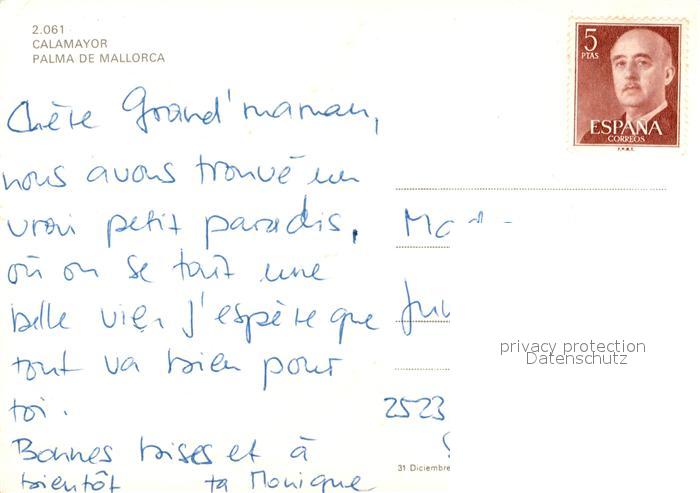 2.061
CALAMAYOR
PALMA DE MALLORCA
5
PTAS
ESPAÑA
CORREOS
F.N.M.T.
Chère Grand'maman,
nous avons trouvé un
vrai petit paradis,
où on se fait une
belle vie, j'espère que
tout va bien pour
toi.
Bonnes bises et à
bientôt ta Monique
2523
privacy protection
Datenschutz
31 Diciembre